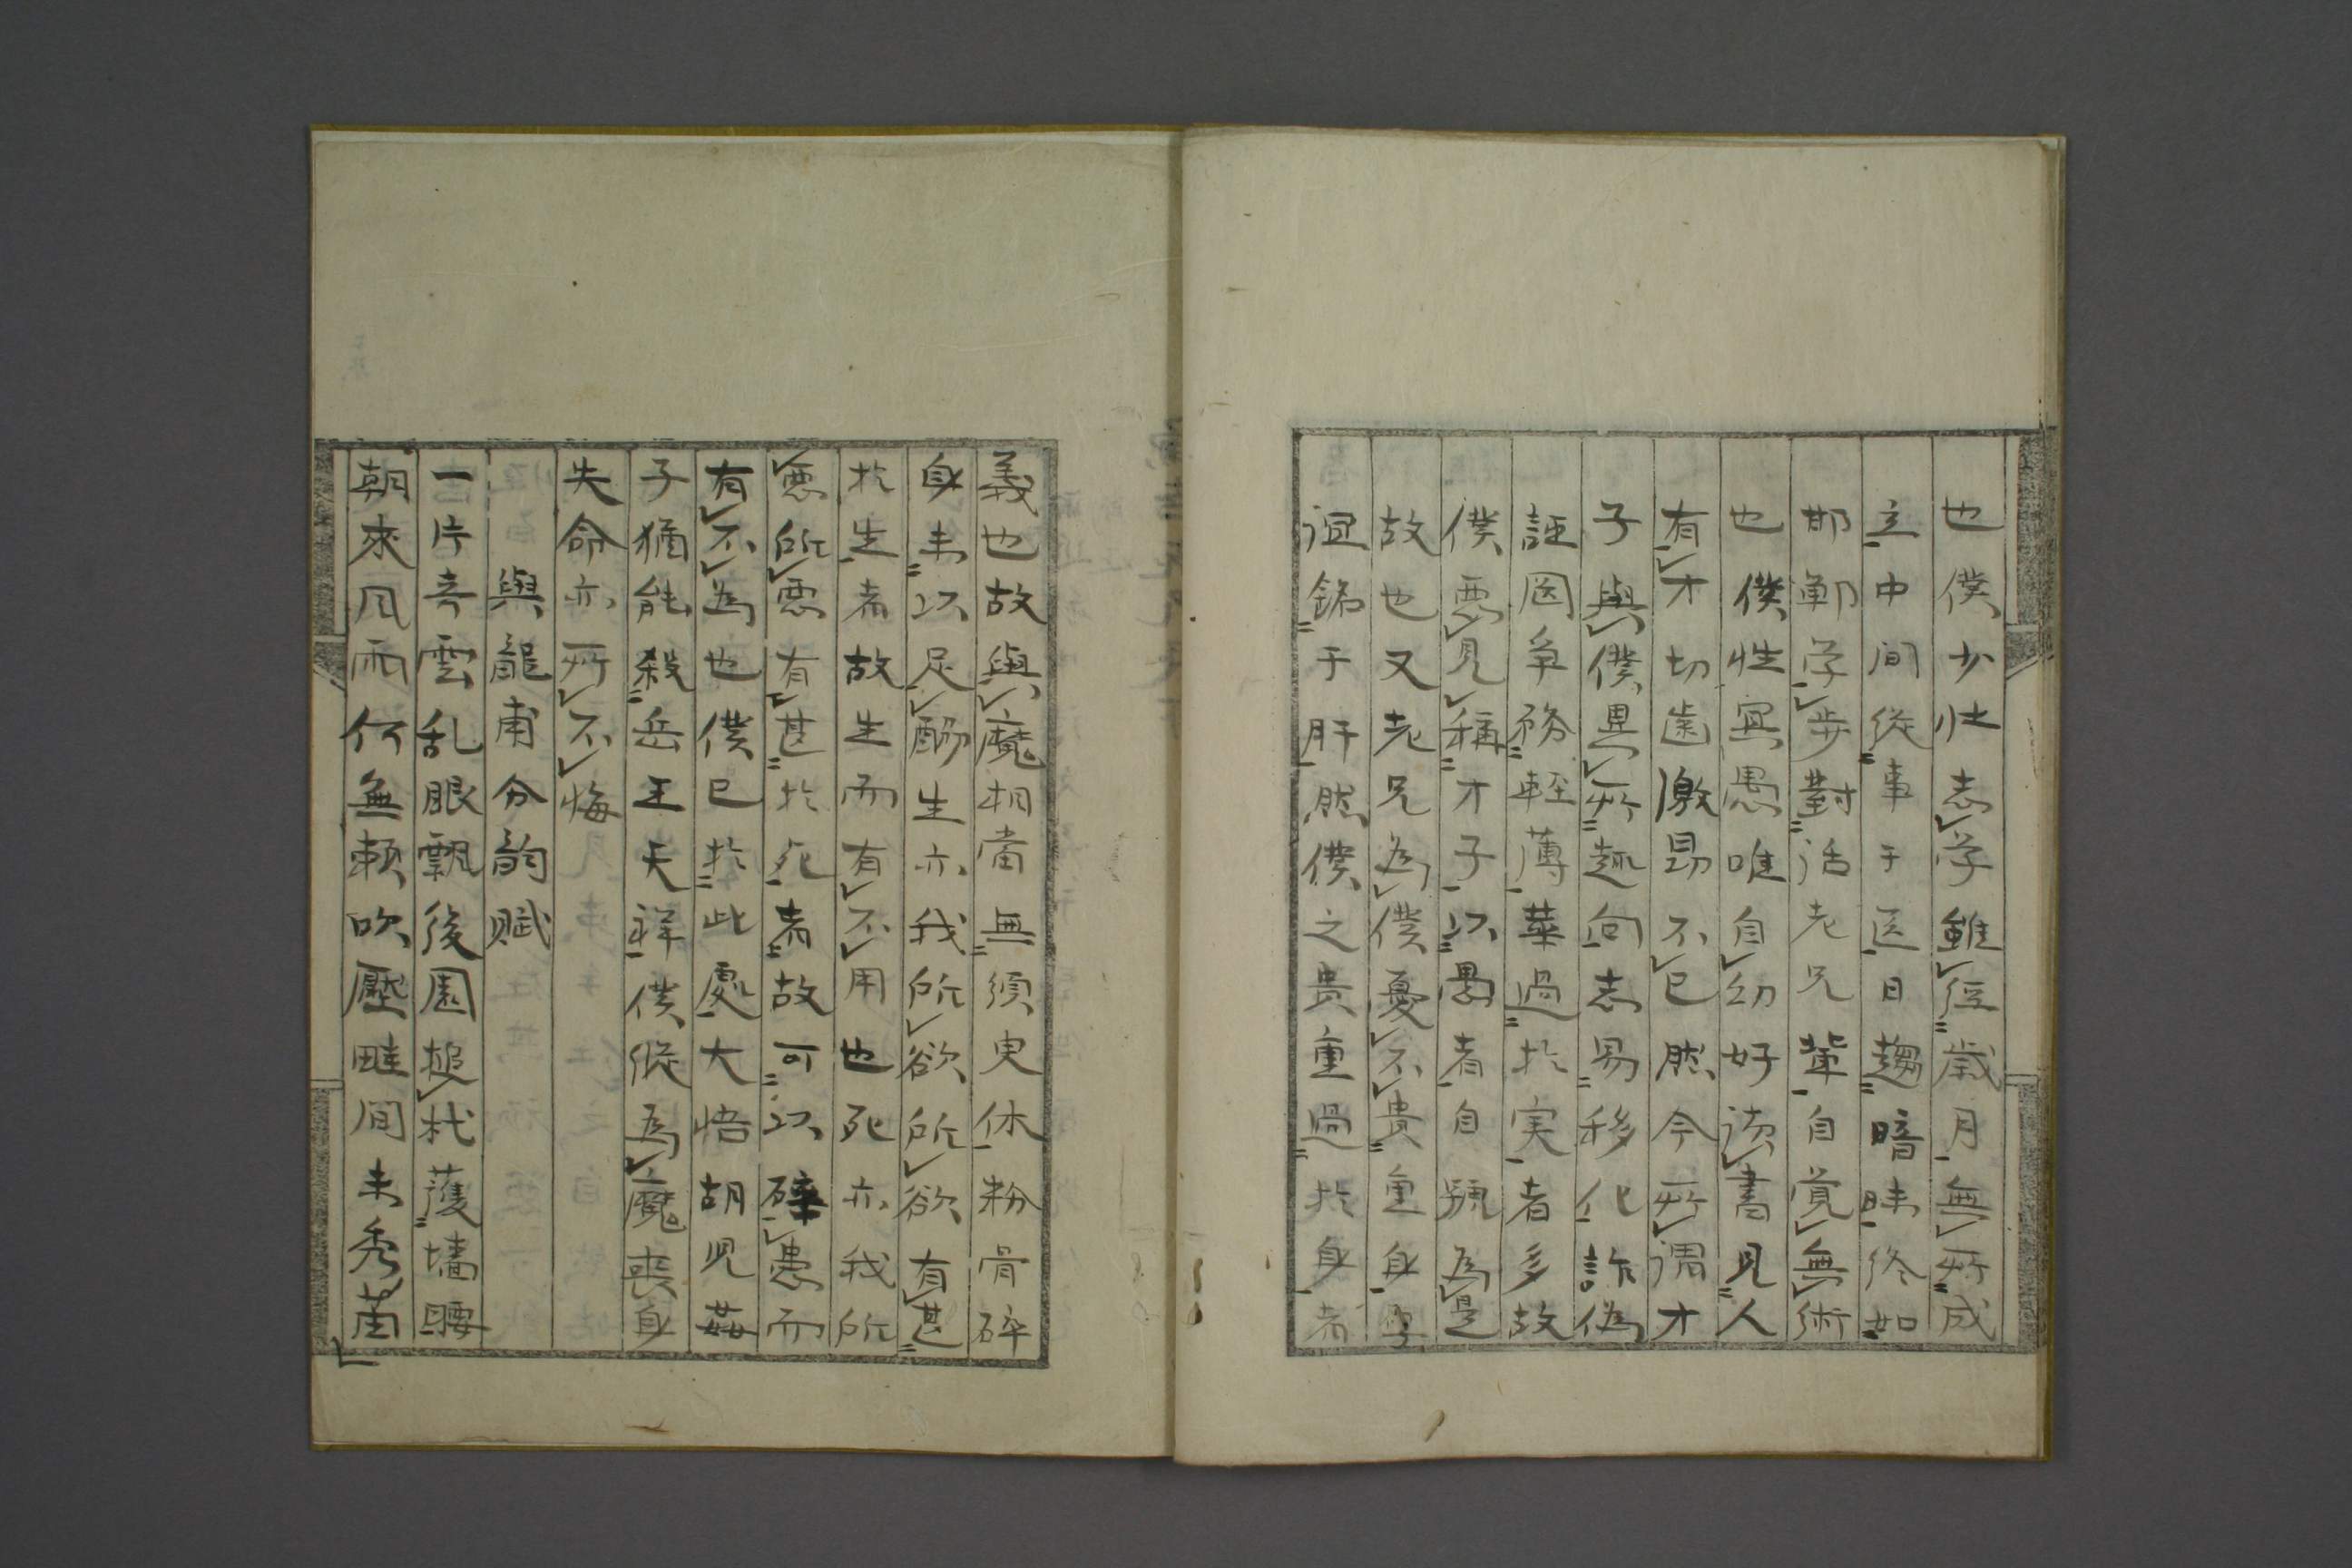 也僕少壮志学雖経歳月無所成
立中間従事于医日趨暗昧終如
邯鄲学歩對活老兄輩自覚無術
也僕性冥愚唯自幼好読書見人
有才切歯激昂不已然今所謂才
子與僕異所趣向志易移化詐偽
誣罔争務軽薄華過於実者多故
僕悪見称才子以愚者自號為是
故也又老兄為僕憂不貴重身字
誼銘于肝然僕之貴重過於身者
義也故與魔相當無須臾休粉骨碎
身未以足酬生亦我所欲所欲有甚
於生者故生而有不用也死亦我所
悪所悪有甚於死者故可以辟患而
有不為也僕已於此處大悟胡児姦
子猶能殺岳王天祥僕縦為魔喪身
失命亦所不悔
與龍甫分韵賦
一片奇雲乱眼飄後園挹杙護墻腰
朝來風雨何無頼吹壓畦間未秀苗